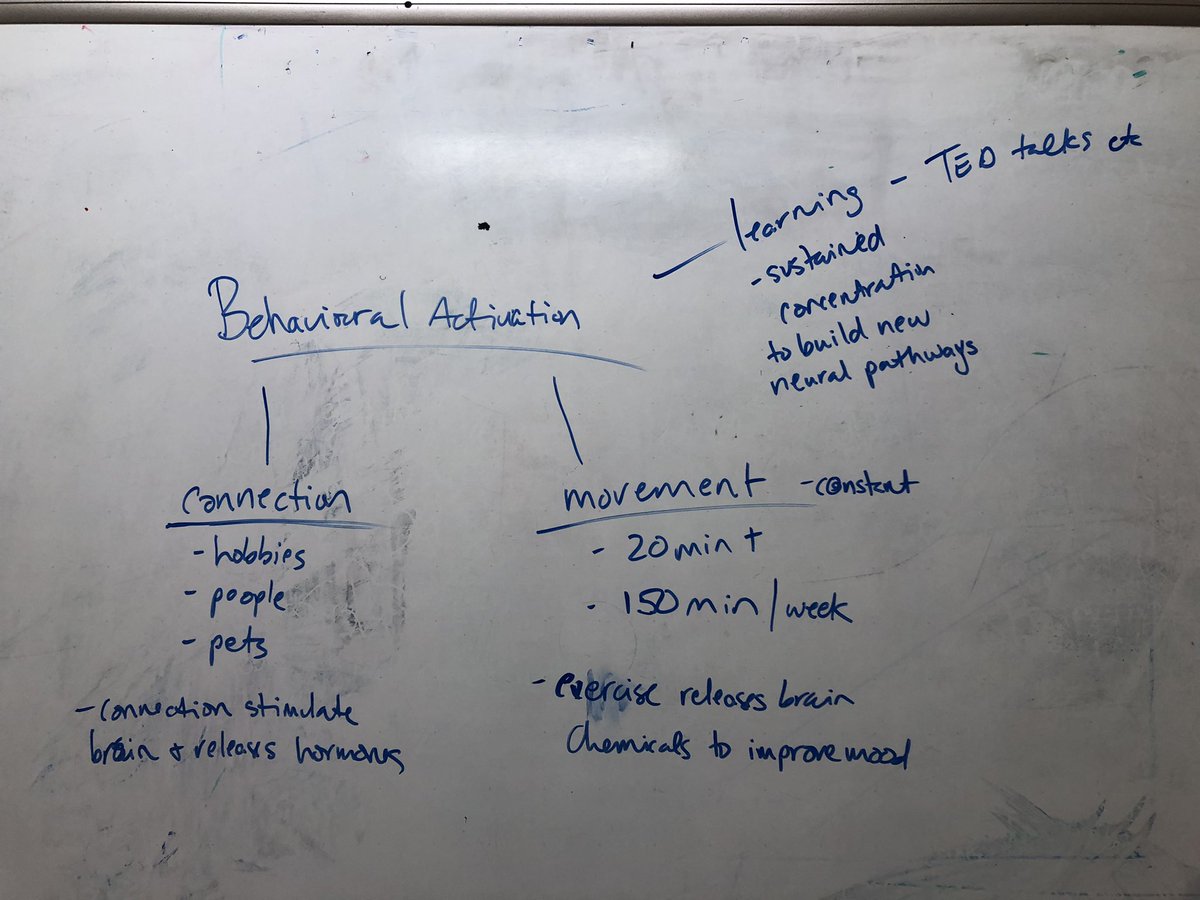 learning - TED talks etc
- sustained
concentration
to build new
neural pathways
Behavioral Activation
connection
- hobbies
- people
- pets
- connection stimulate
brain + releases hormones
movement - constant
- 20 min +
- 150 min / week
- exercise releases brain
chemicals to improve mood